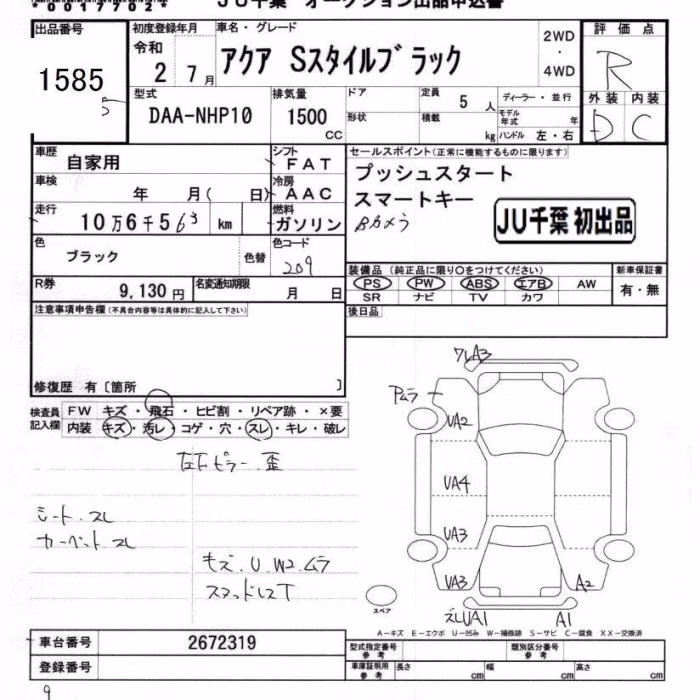 00177024 JU千葉 オークション出品申込書
出品番号 初度登録年月 車名・グレード 評価点
1585 令和 2 7月 アクア Sスタイルブラック 2WD ・ 4WD R
5
型式 排気量 ドア 定員 5 人 ディーラー・並行 外装 内装
DAA-NHP10 1500 CC 形状 積載 kg モデル年式 年 D C
ハンドル 左・右
車歴 自家用 シフト FAT セールスポイント(正常に機能するものに限ります)
車検 年 月( 日) 冷房 AAC プッシュスタート
スマートキー
走行 10万6千563 km 燃料 ガソリン Bカメラ JU千葉 初出品
色 ブラック 色替 色コード 209
装備品 (純正品に限り○をつけてください) 新車保証書
R券 9,130円 名変通知期限 月 日 PS PW ABS エアB AW 有・無
SR ナビ TV カワ
注意事項申告欄(不具合内容等は具体的に記入して下さい) 後日品
修復歴 有〔箇所 〕
検査員記入欄 FW キズ・飛石・ヒビ割・リペア跡・×要
内装 キズ・汚レ・コゲ・穴・スレ・キレ・破レ
左下ピラー歪
シート.スレ
カーペットスレ
キズ.U.W2ムラ
スタッドレスT
フレA3
Pムラ
UA2
UA4
UA3
UA3 A2
ズレUA1 A1
スペア
A－キズ E－エクボ U－凹み W－補修跡 S－サビ C－腐食 XX－交換済
車台番号 2672319 型式指定番号 参考 類別区分番号 参考
登録番号 車庫証明用 参考 長さ cm 幅 cm 高さ cm
9